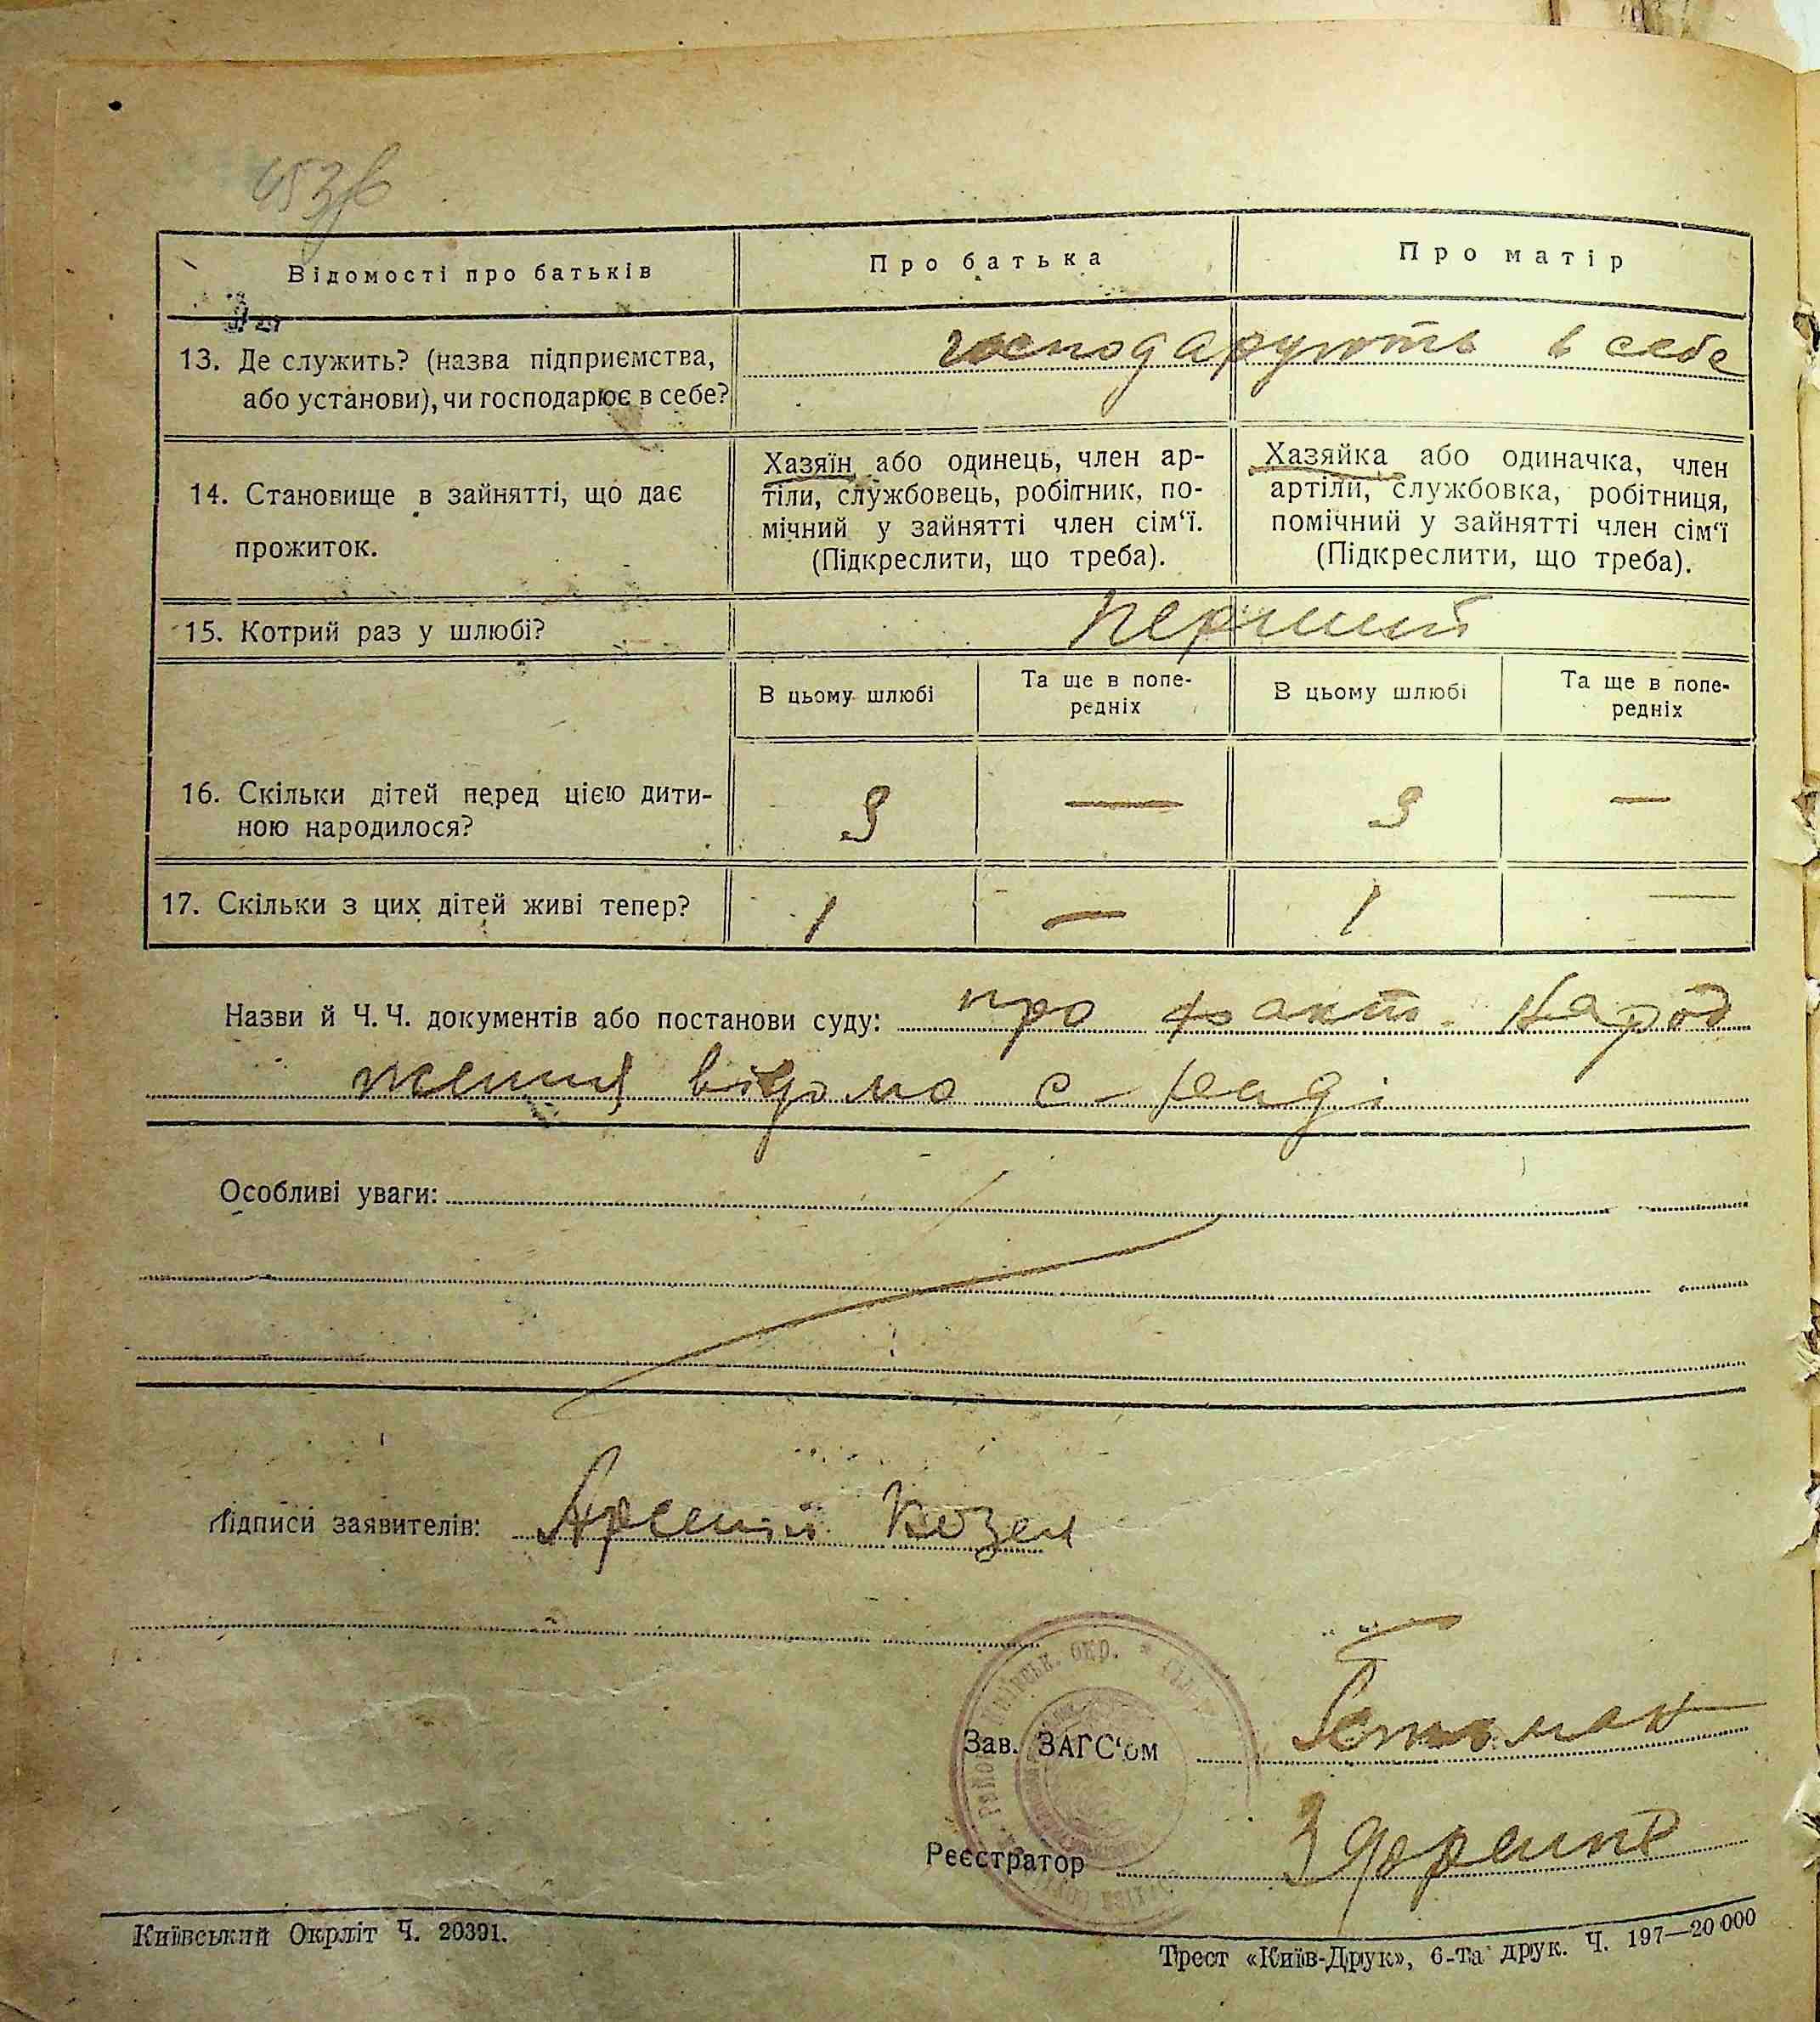 453
Відомості про батьків
Про батька
Про матір
13. Де служить? (назва підприємства,
або установи), чи господарює в себе?
господарують в себе
14. Становище в зайнятті, що дає
прожиток.
Хазяїн або одинець, член ар-
тіли, службовець, робітник, по-
мічний у зайнятті член сім‘ї.
(Підкреслити, що треба).
Хазяйка або одиначка, член
артіли, службовка, робітниця,
помічний у зайнятті член сім‘ї
(Підкреслити, що треба).
15. Котрий раз у шлюбі?
перший
В цьому шлюбі
Та ще в попе-
редніх
В цьому шлюбі
Та ще в попе-
редніх
16. Скільки дітей перед цією дити-
ною народилося?
3 — 3 —
17. Скільки з цих дітей живі тепер?
1 — 1 —
Назви й Ч. Ч. документів або постанови суду: про факт народ
ження відомо с-раді
Особливі уваги:
Підписи заявителів: Арсеній Козел
Київськ. окр. *
Зав. ЗАГС‘ом
Реєстратор
Київський Окрліт Ч. 20391.
Трест «Київ-Друк», 6-та друк. Ч. 197—20 000